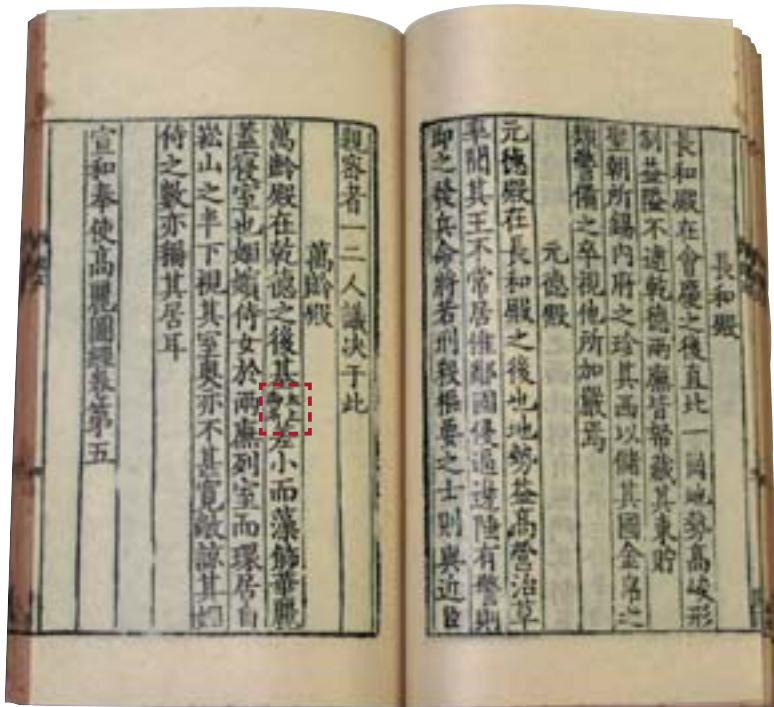 長和殿
長和殿在會慶之後直北一崗地勢高峻形
制益隘不逮乾德兩廡皆帑藏其東貯
聖朝所錫內府之珍其西以儲其國金帛之
類警備之卒視他所加嚴焉
元德殿
元德殿在長和殿之後也地勢益高營治草
率聞其王不常居惟鄰國侵逼邊陲有警則
即之發兵命將若刑殺樞要之士則與近臣
親密者一二人議決于此
萬齡殿
萬齡殿在乾德之後其太上御名差小而藻飾華麗
蓋寢室也妃嬪侍女於兩廡列室而環居自
崧山之半下視其室奧亦不甚寬敞諒其妃
侍之數亦稱其居耳
宣和奉使高麗圖經卷第五